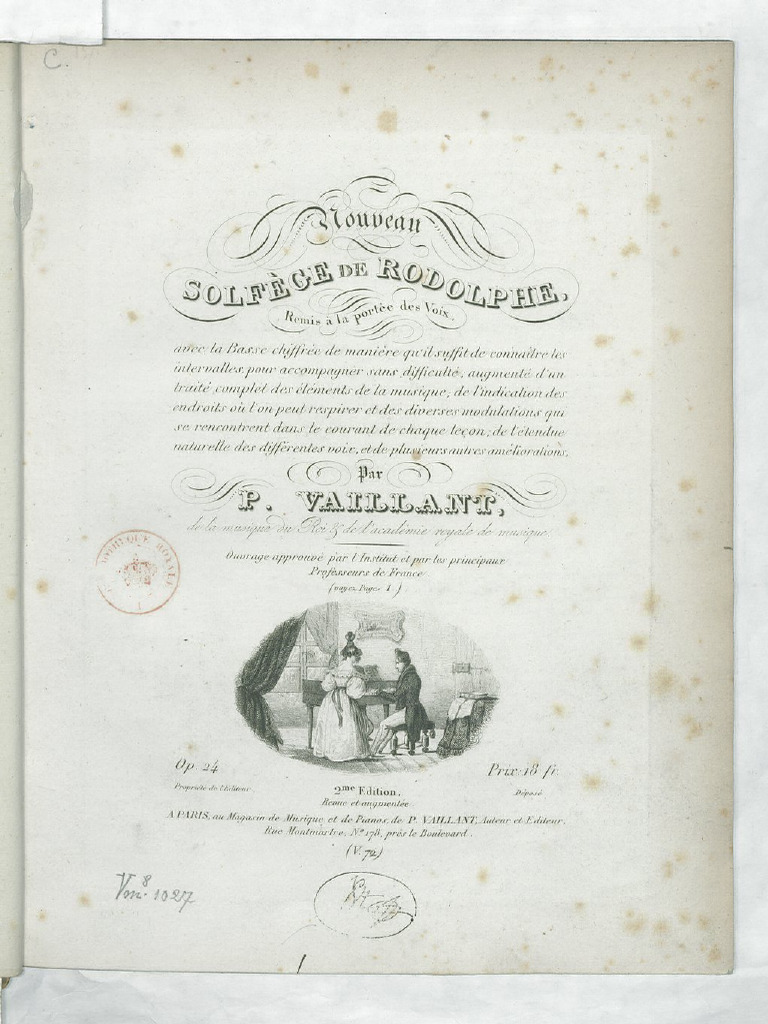 C.
Nouveau
SOLFÈGE DE RODOLPHE,
Remis à la portée des Voix,
avec la Basse chiffrée de manière qu'il suffit de connaître les
intervalles pour accompagner sans difficulté, augmenté d'un
traité complet des éléments de la musique; de l'indication des
endroits où l'on peut respirer et des diverses modulations qui
se rencontrent dans le courant de chaque leçon; de l'étendue
naturelle des différentes voix, et de plusieurs autres améliorations,
Par
P. VAILLANT,
de la musique du Roi & de l'académie royale de musique.
Ouvrage approuvé par l'Institut et par les principaux
Professeurs de France
(voyez Page 1.)
ROYALE
Op. 24
Prix: 18 fr.
Propriété de l'Editeur
2me Edition,
Déposé
Revue et augmentée
A PARIS, au Magasin de Musique et de Pianos, de P. VAILLANT, Auteur et Editeur,
Rue Montmartre, No. 178, près le Boulevard.
(V. 72)
Vm. 8 1027